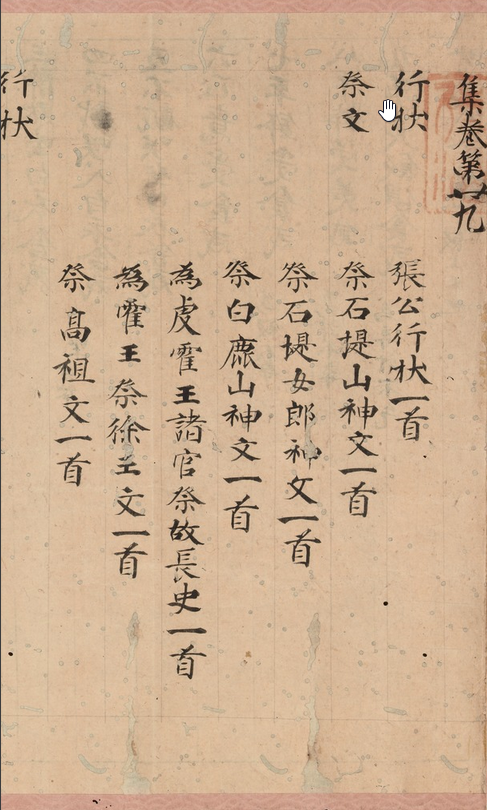 集卷第廿九
行状 張公行状一首
祭文 祭石堤山神文一首
祭石堤女郎神文一首
祭白鹿山神文一首
為虔霍王諸官祭故長史一首
為霍王祭徐王文一首
祭髙祖文一首
行状